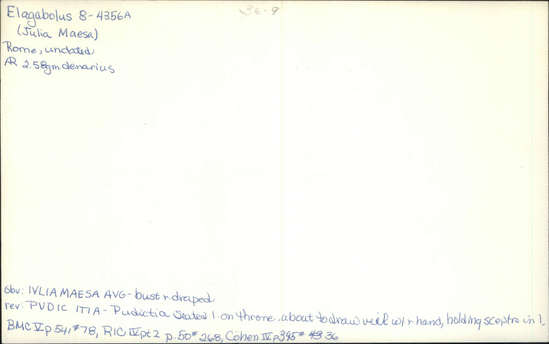 Elagabolus 8-4356A
36-9
(Julia Maesa)
Rome, undated
AR 2.58gm denarius
obv: IVLIA MAESA AVG - bust r. draped
rev: PVDIC ITIA - Pudicitia seated l on throne about to draw veil w/ r hand, holding sceptre in l.
BMC V p 541 #78, RIC IV pt 2 p. 50 # 268, Cohen IV p 395 # 36